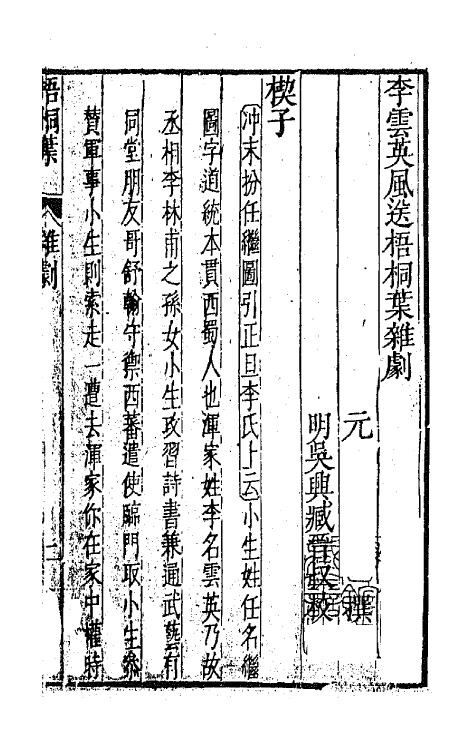 李雲英風送梧桐葉雜劇
元　撰
明吳興臧晉叔校
楔子
沖末扮任繼圖引正旦李氏上云小生姓任名繼
圖字道統本貫西蜀人也渾家姓李名雲英乃故
丞相李林甫之孫女小生攻習詩書兼通武藝有
同堂朋友哥舒翰守禦西蕃遣使臨門取小生參
贊軍事小生則索走一遭去渾家你在家中權時
梧桐葉
雜劇
一